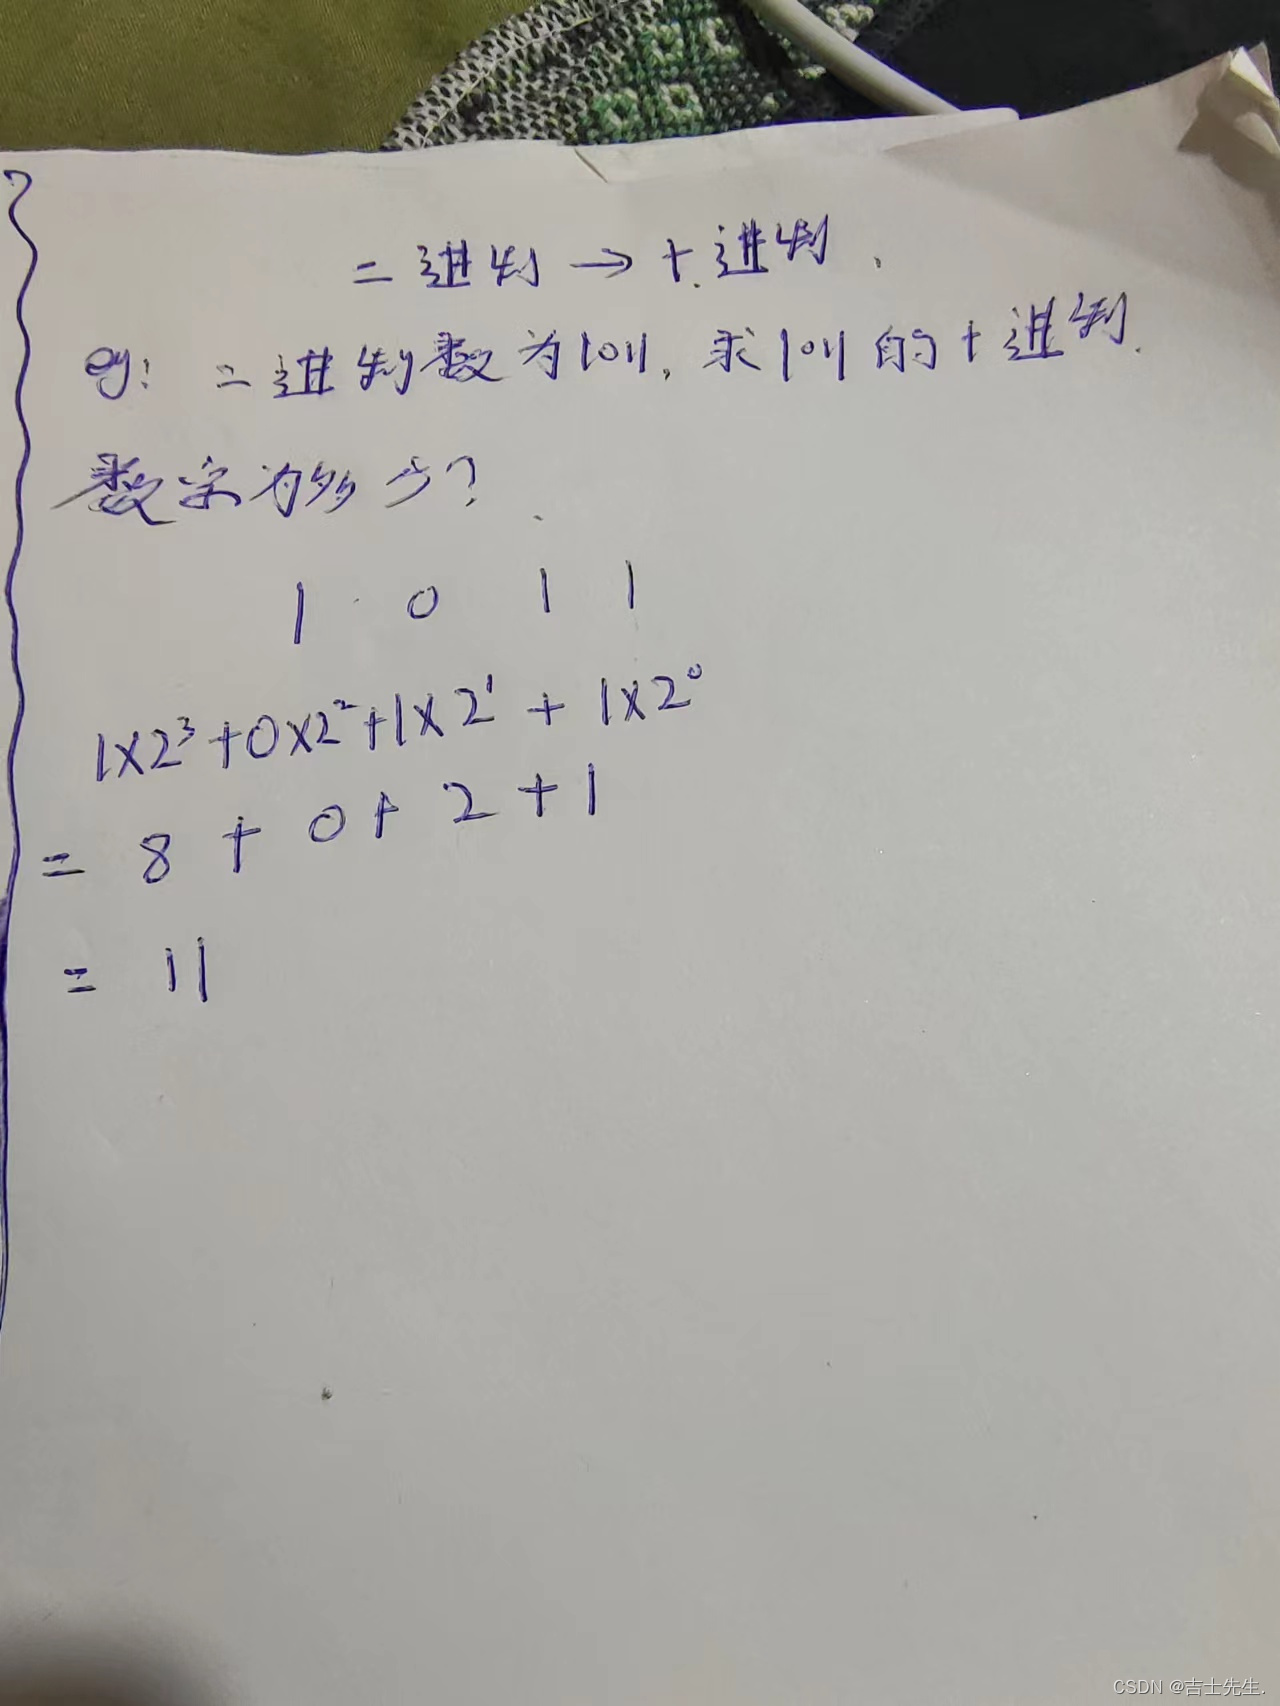 二进制→十进制.
eg: 二进制数为1011, 求1011的十进制.
数字为多少?
1 0 1 1
1×2³+0×2²+1×2¹+1×2⁰
= 8 + 0 + 2 + 1
= 11
CSDN @吉士先生.